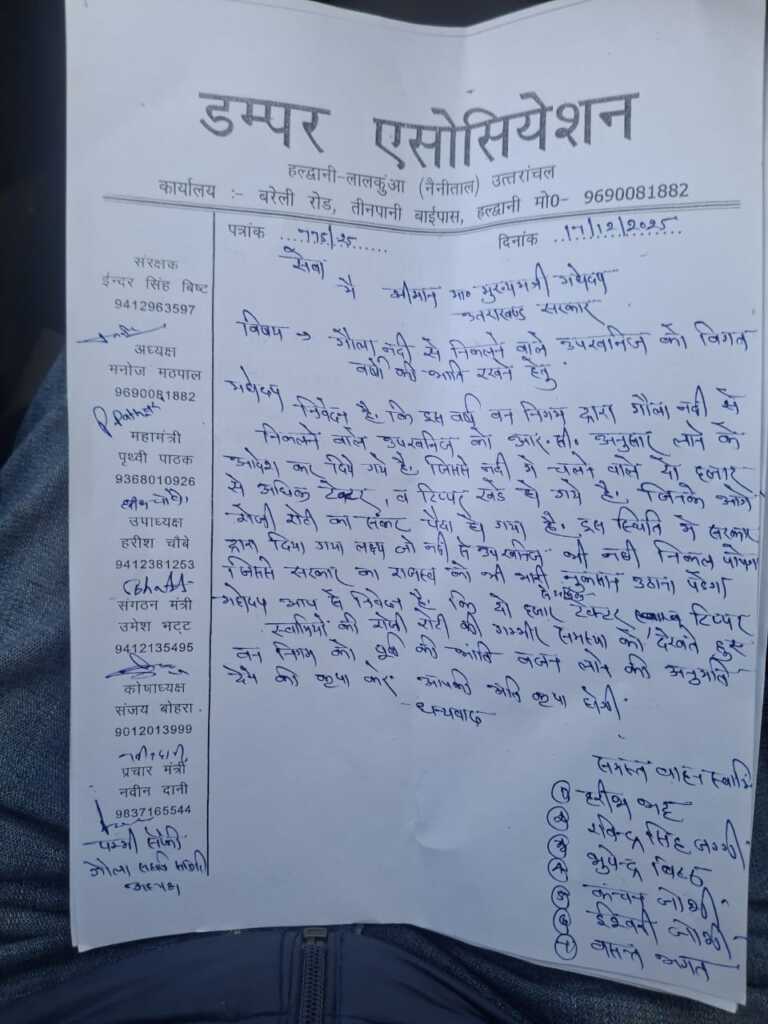 डम्पर एसोसियेशन
हल्द्वानी-लालकुंआ (नैनीताल) उत्तरांचल
कार्यालय :- बरेली रोड, तीनपानी बाईपास, हल्द्वानी मो0- 9690081882
पत्रांक ...775/25......
दिनांक ..17/12/2025..
संरक्षक
ईन्दर सिंह बिष्ट
9412963597
अध्यक्ष
मनोज मठपाल
9690081882
महामंत्री
पृथ्वी पाठक
9368010926
उपाध्यक्ष
हरीश चौबे
9412381253
संगठन मंत्री
उमेश भट्ट
9412135495
कोषाध्यक्ष
संजय बोहरा
9012013999
प्रचार मंत्री
नवीन दानी
9837165544
पम्मी सैफी
गौला संघर्ष समिति
अध्यक्ष
सेवा
में श्रीमान मा० मुख्यमंत्री महोदय
उत्तराखण्ड सरकार
विषय → गौला नदी से निकलने वाले उपखनिज को विगत
वर्षो की भांति रखने हेतु
महोदय
निवेदन है. कि इस वर्ष वन निगम द्वारा गौला नदी से
निकलने वाले उपखनिज को आर.सी. अनुसार लाने के
आदेश कर दिये गये है. जिससे नदी में चलने वाले दो हजार
से अधिक टेक्टर, व टिप्पर खडे हो गये है., जिनके आगे
रोजी रोटी का संकट पैदा हो गया है. इस स्थिति में सरकार
द्वारा दिया गया लक्ष्य जो नदी से उपखनिज भी नही निकल पायेगा
जिससे सरकार का राजस्व को भी भारी नुकसान उठाना पडेगा
महोदय आप से निवेदन है. कि दो हजार टेक्टर टिप्पर
स्वामियों की रोजी रोटी की गम्भीर समस्या को देखते हुए
वन निगम को पूर्व की भांति वजन लाने की अनुमति
देने की कृपा करे आपकी अति कृपा होगी
धन्यवाद
समस्त वाहन स्वामि
① हरीश भट्ट
② रविन्द्र सिंह जग्गी
③ भुपेन्द्र बिष्ट
④ कंचन जोशी
⑤ ईश्वरी जोशी
⑦ बसन्त भगत